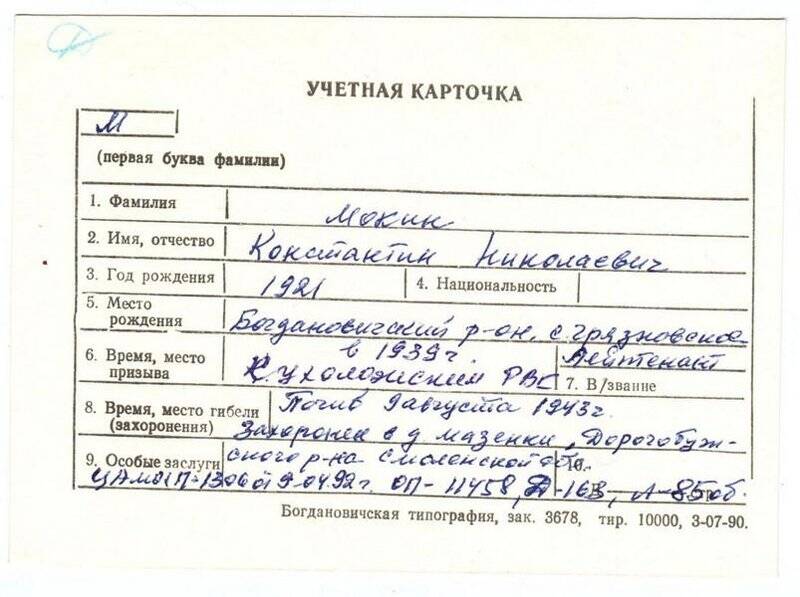 УЧЕТНАЯ КАРТОЧКА
М
(первая буква фамилии)
1. Фамилия Мокин
2. Имя, отчество Константин Николаевич
3. Год рождения 1921 4. Национальность
5. Место рождения Богдановичский р-он, с. Грязновское
6. Время, место призыва в 1939 г. Сухоложским РВК
Лейтенант
7. В/звание
8. Время, место гибели (захоронения) Погиб 9 августа 1943 г.
Захоронен в д. Мазенки, Дорогобуж-
ского р-на Смоленской обл.
9. Особые заслуги 10.
ЦАМО 9.04.92 г. ОП-11458, Д-163, Л-85 об.
Богдановичская типография, зак. 3678, тир. 10000, 3-07-90.